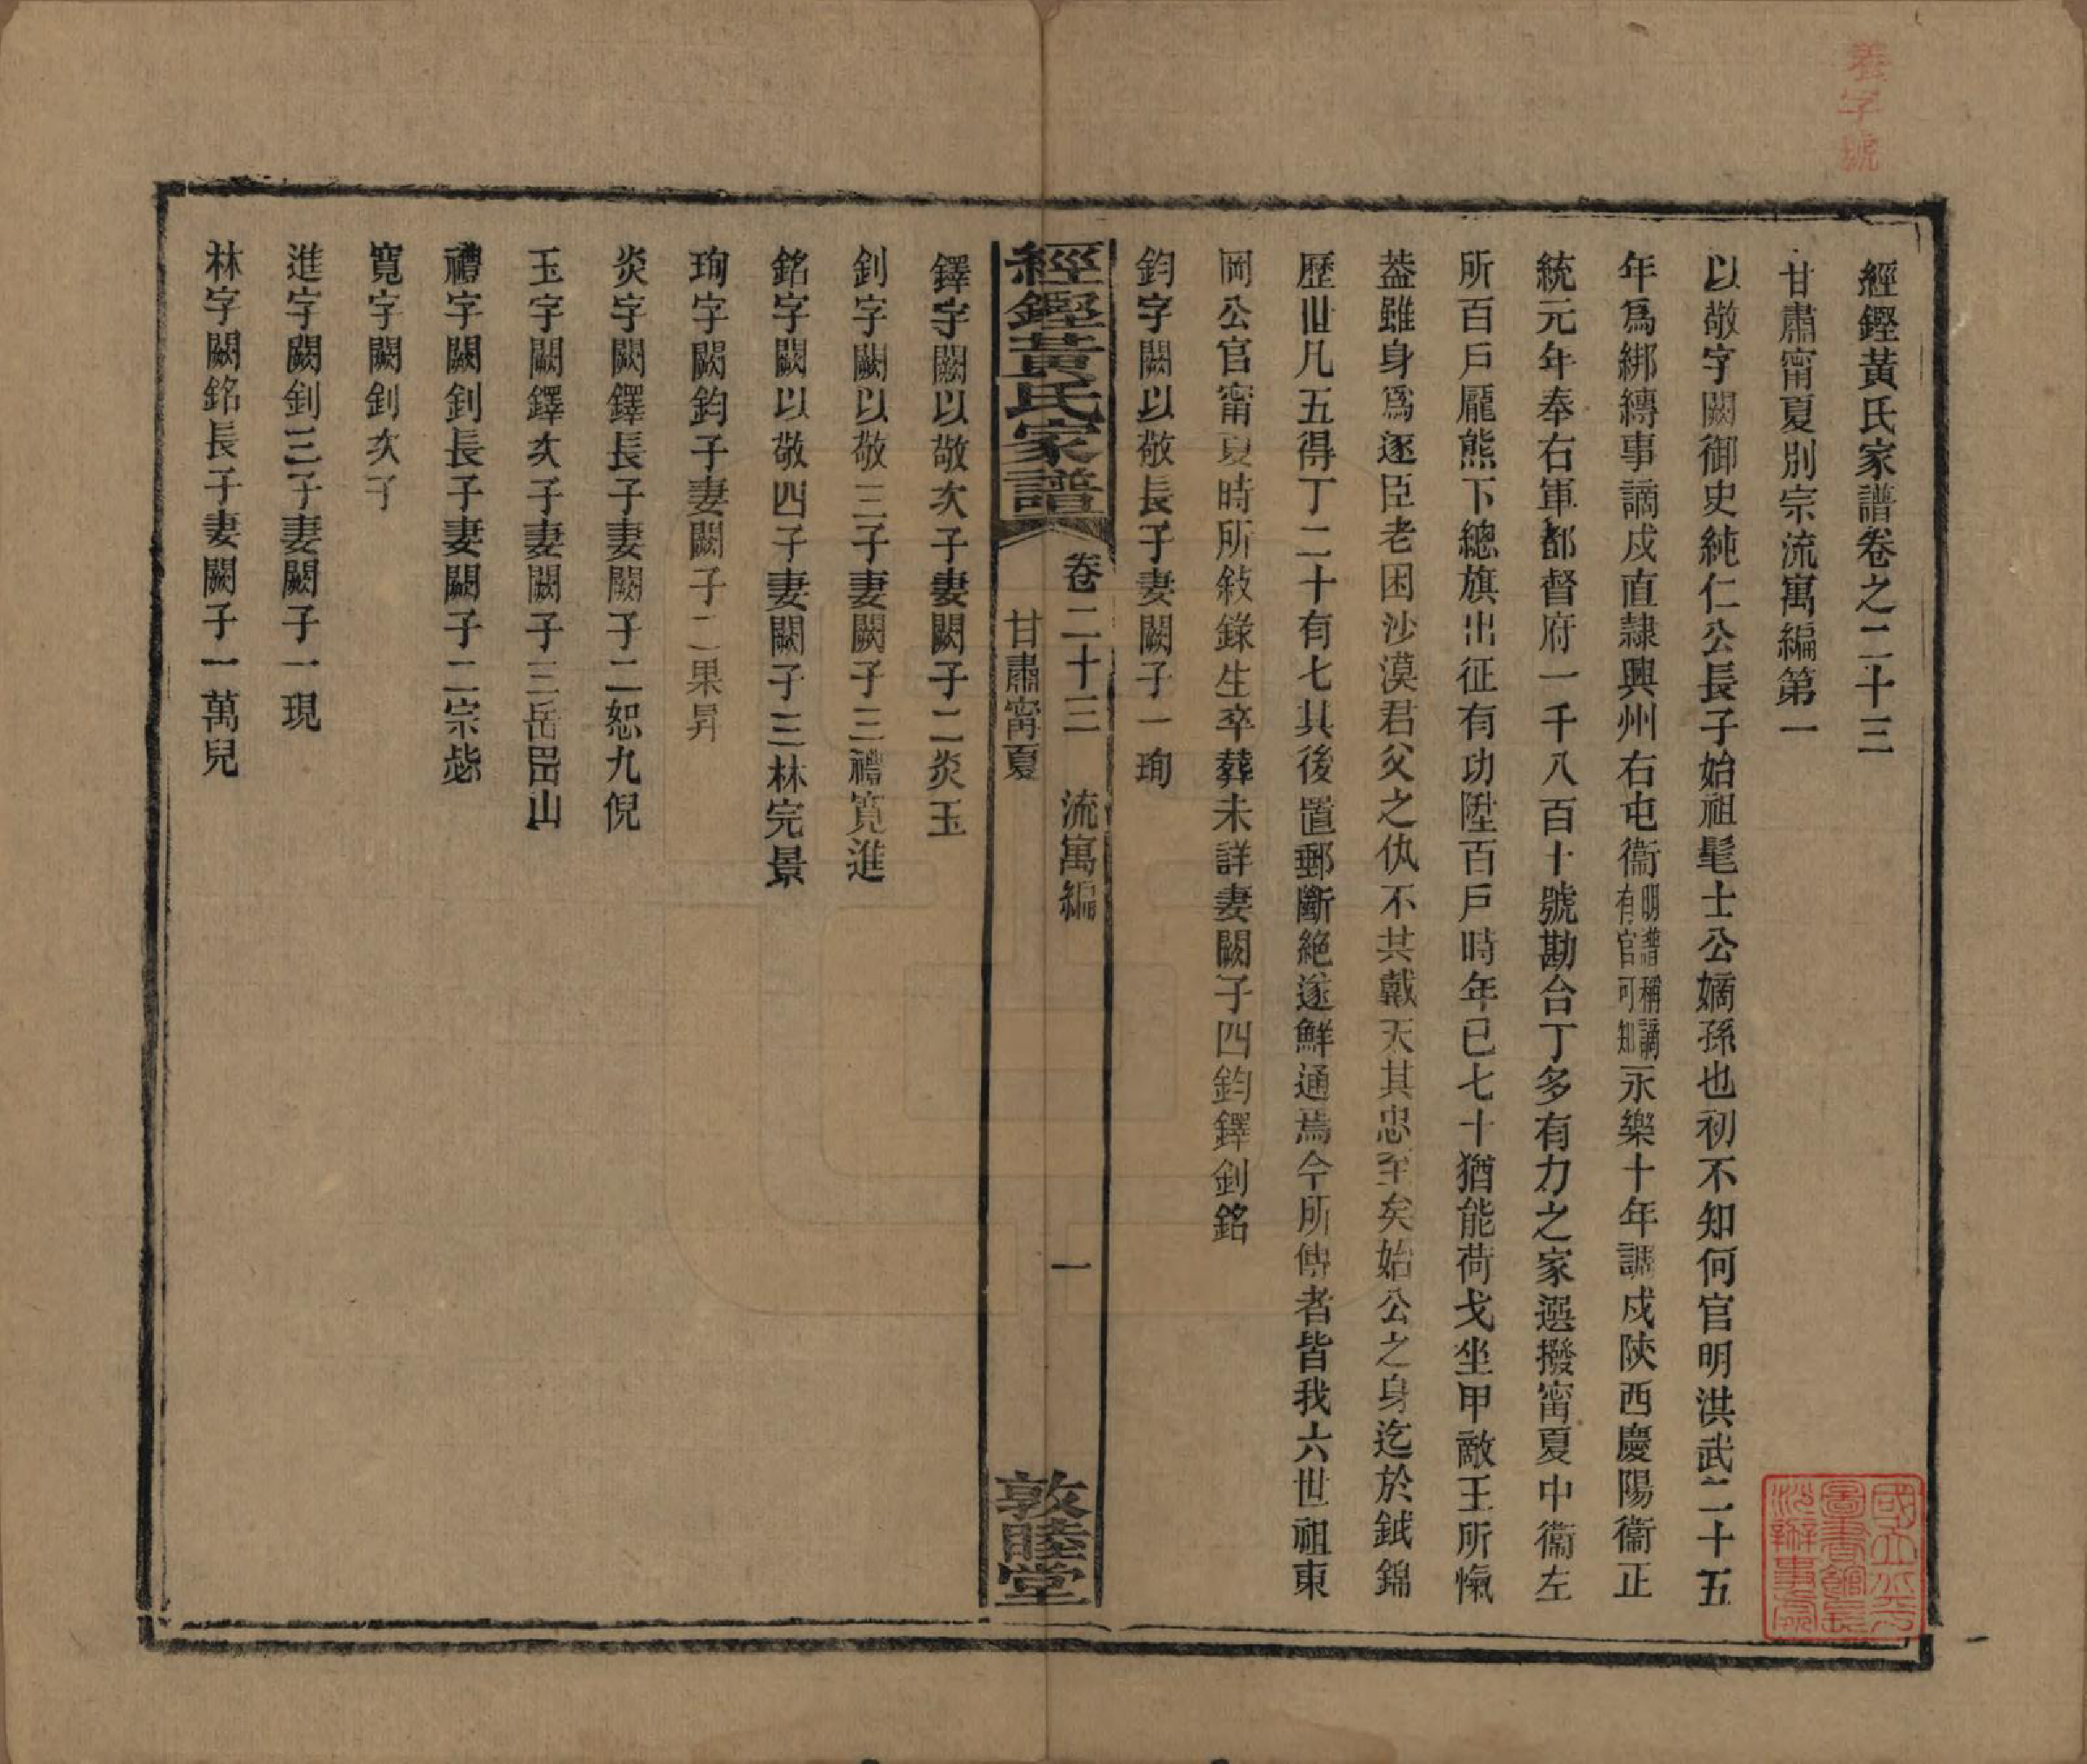 養字號
經鏗黃氏家譜卷之二十三
甘肅甯夏別宗流寓編第一
以敬字闕御史純仁公長子始祖髦士公嫡孫也初不知何官明洪武二十五
年爲綁縛事謫戍直隷興州右屯衞明譜稱謫有官可知永樂十年調戍陝西慶陽衞正
統元年奉右軍都督府一千八百十號勘合丁多有力之家選撥甯夏中衞左
所百戶龎熊下總旗出征有功陞百戶時年已七十猶能荷戈坐甲敵王所愾
葢雖身爲逐臣老困沙漠君父之仇不共戴天其忠至矣始公之身迄於鉞錦
歷世凡五得丁二十有七其後置郵斷絕遂鮮通焉今所傳者皆我六世祖東
岡公官甯夏時所敍錄生卒葬未詳妻闕子四鈞鐸釗銘
鈞字闕以敬長子妻闕子一珣
經鏗黃氏家譜 卷二十三 流寓編 甘肅甯夏 一 敦睦堂
鐸字闕以敬次子妻闕子二炎玉
釗字闕以敬三子妻闕子三禮寬進
銘字闕以敬四子妻闕子三林完景
珣字闕鈞子妻闕子二果昇
炎字闕鐸長子妻闕子二恕九倪
玉字闕鐸次子妻闕子三岳嵒山
禮字闕釗長子妻闕子二宗毖
寬字闕釗次子
進字闕釗三子妻闕子一現
林字闕銘長子妻闕子一萬兒
國立北平
圖書館長
沙辦事處